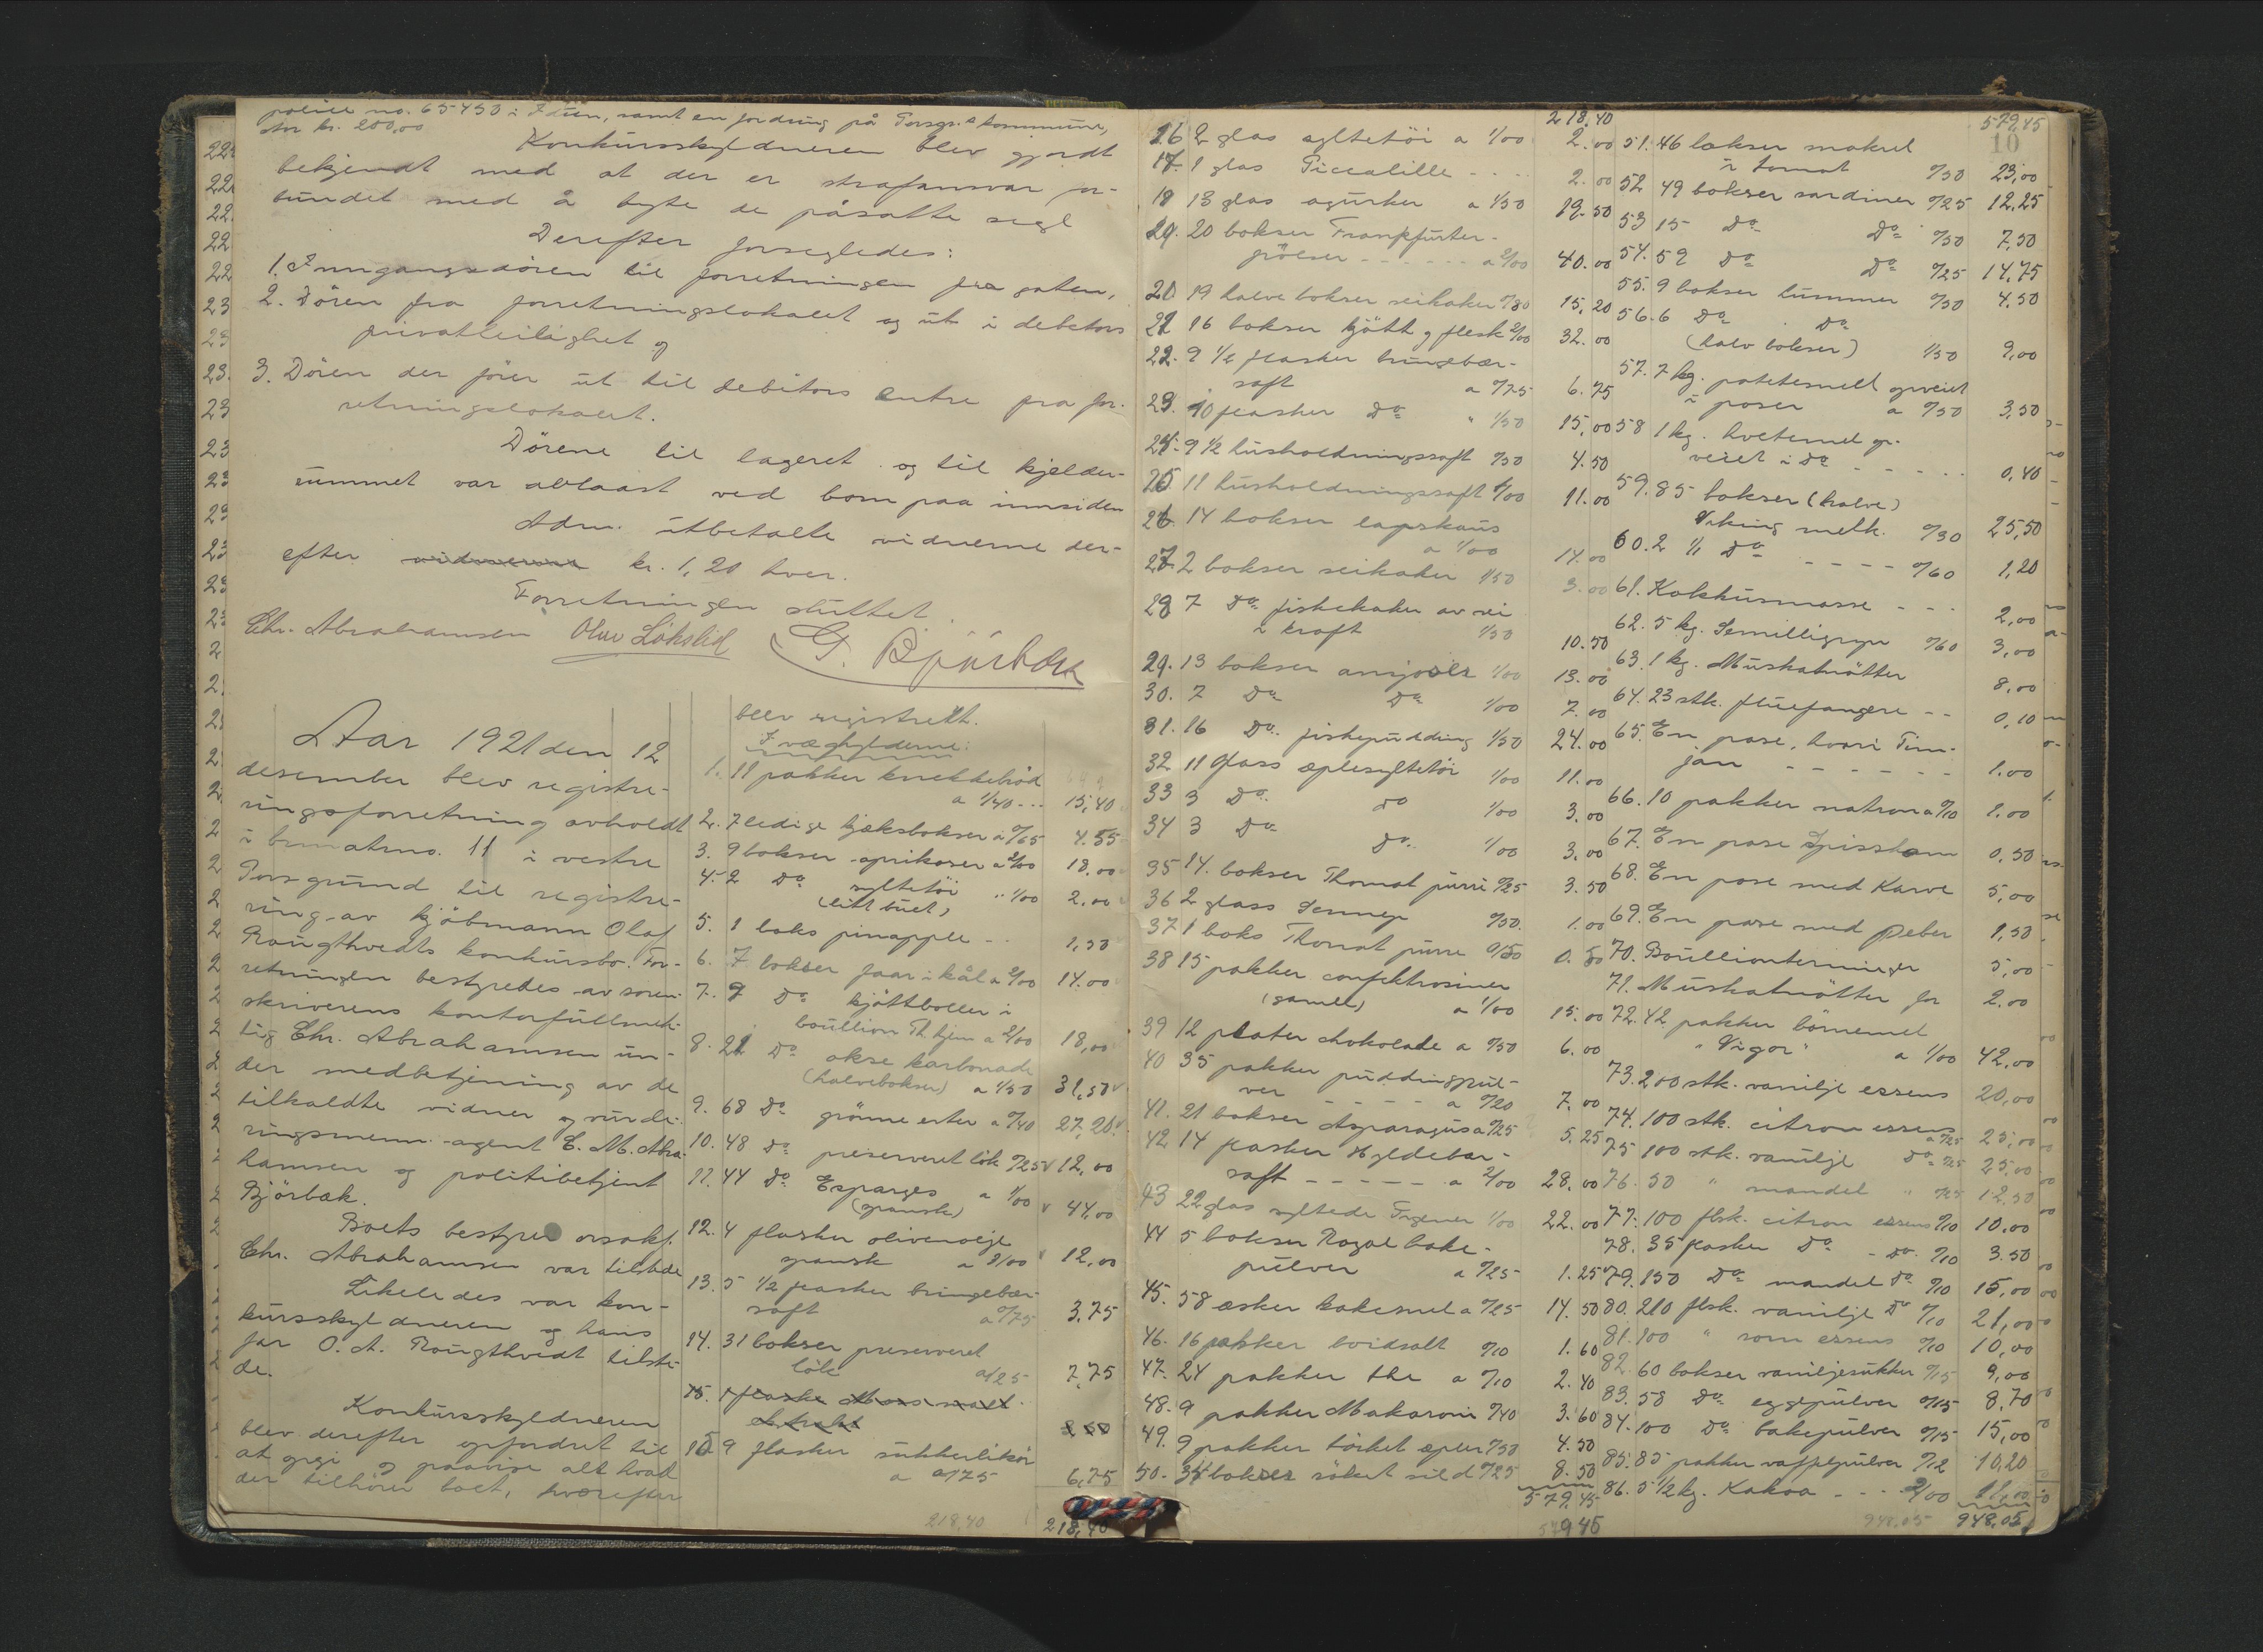 police no. 65450 i Idun, samt en fordring på Porsgr.s kommune,
stor kr. 200,00
Konkursskyldneren blev gjordt
bekjendt med at der er strafansvar for-
bundet med å bryte de påsatte segl
Derefter forsegledes:
1. Inngangsdören til forretningen fra gaten,
2. Dören fra forretningslokalet og ut i debitors
privatleilighet og
3. Dören der förer ut til debitors entre fra for-
retningslokalet.
Dörene til lageret og til kjelder-
rummet var avlaast ved bom paa innsiden
Adm. utbetalte vidnerne der-
efter kr. 1,20 hver.
Forretningen sluttet.
Chr. Abrahamsen Olav Lökslid G. Björbæk
Aar 1921 den 12
desember blev registre-
ringsforretning avholdt
i brmatrno. 11 i vestre
Porsgrund til registre-
ring av kjöbmann Olaf
Rougthvedts konkursbo. For-
retningen bestyredes av soren-
skriverens kontorfullmek-
tig Chr. Abrahamsen un-
der medbetjening av de
tilkaldte vidner og vurde-
ringsmenn agent C. M. Abra-
hamsen og politibetjent
Björbæk.
Boets bestyrer orsakf.
Chr. Abrahamsen var tilstede
Likeledes var kon-
kursskyldneren og hans
far O. A. Rougthvedt tilste-
de.
Konkursskyldneren
blev derefter opfordret til
at opgi og paavise alt hvad
der tilhörer boet, hvorefter
blev registrert.
I væghylderne:
1. 11 pakker knekkebröd
a 1/40 --- 15,40
2. 7 ledige kjeksbokser a 0/65 4.55
3. 9 bokser aprikoser a 2/00 18.00
4. 2 Do syltetöi " 1/00 2.00
(litt buet)
5. 1 boks pinapple -- 1,50
6. 7 bokser faar i kål a 2/00 14.00
7. 9 Do kjöttboller i
boullion Th. hjem a 2/00 18,00
8. 21 Do okse karbonade
(halvebokser) a 1/50 31,50
9. 68 Do grönne erter a 0/40 27,20
10. 48 Do preserveret lök 0/25 12,00
11. 44 Do Esparges a 1/00 44,00
(spansk)
12. 4 flasker olivenolje
spansk a 3/00 12,00
13. 5 1/2 flasker bringebær-
saft a 0/75 3,75
14. 31 bokser preserveret
lök a/25 7,75
15. 1 flaske Moss malt
ekstrakt
15 9 flasker sukkerlikör
a 0/75 6,75
218,40 218,40
218,40
16 2 glas syltetöi a 1/00 2.00
17. 1 glas Piccalille - - - - 2.00
18 13 glas agurker a 1/50 19.50
19. 20 bokser Frankfurter-
pölser - - - - - - a 2/00 40.00
20 19 halve bokser seikaker 0/80 15,20
21 16 bokser kjött og flesk 2/00 32.00
22. 9 1/2 flasker bringebær-
saft a 0/75 6.75
23. 10 flasker Do " 1/50 15,00
24. 9 1/2 husholdningssaft 0/50 4.50
25. 11 husholdningssaft 1/00 11.00
26. 14 bokser lapskaus
a 1/00 14.00
27. 2 bokser seikaker 1/50 3.00
28 7 Do fiskekaker av sei
i kraft 1/50 10.50
29. 13 bokser ansjoser 1/00 13.00
30. 7 Do Do 1/00 7.00
31. 16 Do. fiskepudding 1/50 24.00
32 11 Glass eplesyltetöi 1/00 11.00
33 3 Do. do 1/00 3.00
34 3 Do Do. 1/00 3.00
35 14. bokser Thomat purri 0/25 3.50
36 2 glass Sennep 0/50. 1.00
37 1 boks Thomat purre 0/50 0.50
38 15 pakker confektrosiner
(gamle) a 1/00 15.00
39 12 plater chokolade a 0/50 6.00
40 35 pakker puddingpul-
ver - - - - a 0/20 7.00
41. 21 bokser Asparagus a 0/25 5.25
42 14 flasker Hyldebær-
saft - - - - - a 2/00 28.00
43 22 glas syltede Figener 1/00 22.00
44 5 bokser Royal bake-
pulver a 0/25 1.25
45. 58 æsker kakemel a 0/25 14.50
46. 16 pakker bordsalt 0/10 1.60
47. 24 pakker the a 0/10 2.40
48. 9 pakker Makaroni 0/40 3.60
49. 9 pakker törket epler 0/50 4.50
50. 34 bokser röket sild 0/25 8.50
579,45
579 45
579,45
10
51. 46 bokser makrel
i tomat 0/50 23,00
52 49 bokser sardiner 0/25 12,25
53 15 Do Do 0/50 7,50
54. 59 Do Do 0/25 14,75
55. 9 bokser hummer 0/50 4.50
56. 6 Do Do
(halv bokser) 1/50 9,00
57. 7 kg. potetesmell opveiet
i poser a 0/50 3,50
58 1 kg. hvetemel op-
veiet i do - - - - - 0,40
59. 85 bokser (halve)
Viking melk. 0/30 25,50
60. 2 1/1 Do - - - - 0/60 1,20
61. Kokkusmasse - - - 2,00
62. 5 kg. Semilligryn 0/60 3,00
63. 1 kg. Muskatnötter 8,00
64. 23 stk. fluefangere - - 0,10
65. En pose, hvori Tim-
jan - - - - - - 1.00
66. 10 pakker natron a 0/10 1.00
67. En pose Spisskom 0,50
68. En pose med Karve 5,00
69. En pose med peber 1,50
70. Boullionterninger 5,00
71. Muskatnötter for 2.00
72. 42 pakker börnemel
"Vigor" a 1/00 42,00
73. 200 stk. vanilje essens 20,00
74. 100 stk. citron essens
a 0/25 25,00
75 100 stk. vanilje Do 0/25 25,00
76. 50 " mandel " 0/25 12,50
77. 100 flsk. citron essens 0/10 10.00
78. 35 flasker Do - do 0/10 3.50
79. 150 Do mandel do 0/10 15,00
80. 210 flsk. vanilje Do 0/10 21,00
81. 100 " rom essens 0/10 10,00
82. 60 bokser vaniljesukker 0/15 9,00
83. 58 Do eggepulver 0/15 8,70
84. 100 Do bakepulver 0/15 15,00
85. 85 pakker vaffelpulver 0/12 10,20
86. 5 1/2 kg. Kakao - - - 2/00 11,00
948.05 948,05